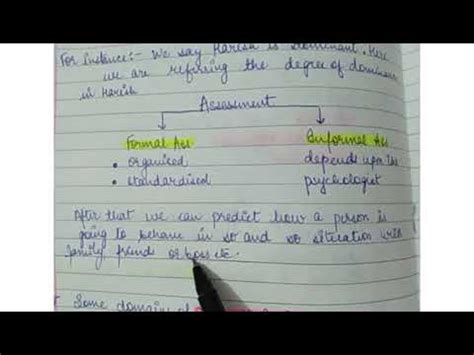 For Instance:- We say Harish is dominant. Here
we are referring the degree of dominance
in Harish
Assessment
Formal Ass Informal Ass
• organised depends upon the
• standardised psychologist
After that we can predict how a person is
going to behave in so and so situation with
family, friends or boss etc.
Some domains of